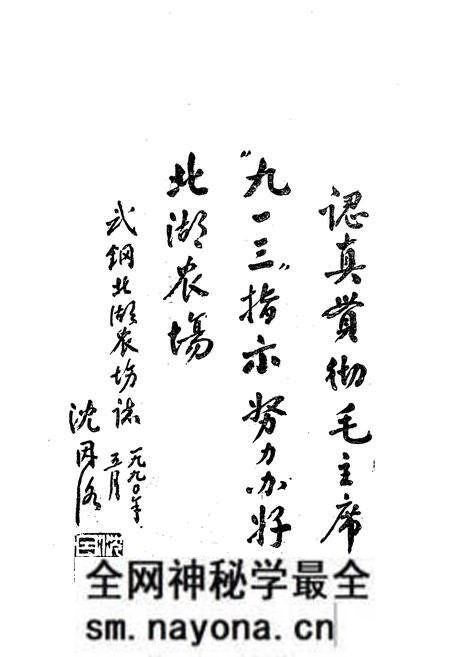 認真貫彻毛主席
“九一三”指示努力办好
北湖农場
武鋼北湖农场誌
一九九〇年
五月
沈因洛
全网神秘学最全
sm.nayona.cn